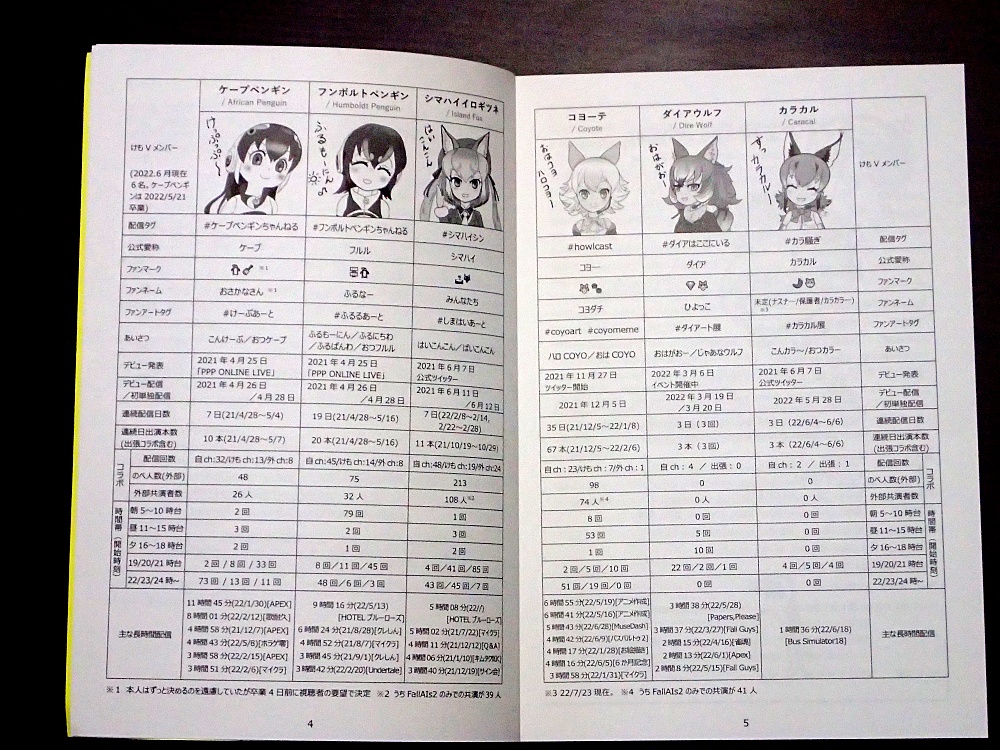 ケープペンギン
/ African Penguin
フンボルトペンギン
/ Humboldt Penguin
シマハイイロギツネ
/ Island Fox
けもVメンバー
(2022.6月現在
6名。ケープペンギ
ンは 2022/5/21
卒業)
けっぷっぷ〜
ふるもーにん♪
はいこんこん
配信タグ #ケープペンギンちゃんねる #フンボルトペンギンちゃんねる #シマハイシン
公式愛称 ケープ フルル シマハイ
ファンマーク ※1
ファンネーム おさかなさん ※1 ふるなー みんなたち
ファンアートタグ #けーぷあーと #ふるるあーと #しまはいあーと
あいさつ こんけーぷ/おつケープ ふるもーにん/ふるにちわ はいこんこん/ばいこんこん
/ふるばんわ/おつフルル
デビュー発表 2021年4月25日 2021年4月25日 2021年6月7日
「PPP ONLINE LIVE」 「PPP ONLINE LIVE」 公式ツイッター
デビュー配信 2021年4月26日 2021年4月26日 2021年6月11日
/初単独配信 /4月28日 /4月28日 /6月12日
連続配信日数 7日(21/4/28〜5/4) 19日(21/4/28〜5/16) 7日(22/2/8〜2/14,
2/22〜2/28)
連続日出演本数
(出張コラボ含む) 10本(21/4/28〜5/7) 20本(21/4/28〜5/16) 11本(21/10/19〜10/29)
コラボ
配信回数 自ch:32/けもch:13/外ch:8 自ch:45/けもch:14/外ch:8 自ch:48/けもch:19/外ch:24
のべ人数(外部) 48 75 213
外部共演者数 26人 32人 108人※2
時間帯(開始時刻)
朝5〜10時台 2回 79回 1回
昼11〜15時台 3回 2回 3回
夕16〜18時台 2回 1回 2回
19/20/21時台 2回/8回/33回 8回/11回/45回 4回/41回/85回
22/23/24時〜 73回/13回/11回 48回/6回/3回 43回/45回/7回
主な長時間配信
11時間45分(22/1/30)[APEX]
8時間01分(22/2/12)[歌耐久]
4時間58分(21/12/7)[APEX]
4時間43分(22/5/8)[ホラゲ零]
3時間58分(22/2/15)[APEX]
3時間51分(22/2/6)[マイクラ]
9時間16分(22/5/13)
[HOTELブルーローズ]
6時間24分(21/8/28)[クレしん]
4時間52分(21/8/7)[マイクラ]
3時間45分(21/9/1)[クレしん]
3時間42分(22/2/20)[Undertale]
5時間08分(22//)
[HOTELブルーローズ]
5時間02分(21/7/22)[マイクラ]
4時間11分(21/12/12)[Q&A]
4時間06分(21/1/10)[キムタク如く]
3時間40分(21/12/19)[サイン会]
※1 本人はずっと決めるのを遠慮していたが卒業4日前に視聴者の要望で決定 ※2 うちFallAIs2のみでの共演が39人
4
コヨーテ
/ Coyote
ダイアウルフ
/ Dire Wolf
カラカル
/ Caracal
けもVメンバー
おはコヨ
ハロコヨー
おはがおー
すっカラカルー
#howlcast #ダイアはここにいる #カラ騒ぎ 配信タグ
コヨー ダイア カラカル 公式愛称
ファンマーク
コヨダチ ひよっこ 未定(ナスナー/保護者/カラカラー) ファンネーム
※3
#coyoart #coyomeme #ダイアート展 #カラカル展 ファンアートタグ
ハロCOYO/おはCOYO おはがお〜/じゃあなウルフ こんカラ〜/おつカラー あいさつ
2021年11月27日 2022年3月6日 2021年6月7日 デビュー発表
ツイッター開始 イベント開催中 公式ツイッター
2021年12月5日 2022年3月19日 2022年5月28日 デビュー配信
/3月20日 /初単独配信
35日(21/12/5〜22/1/8) 3日(3回) 3日(22/6/4〜6/6) 連続配信日数
67本(21/12/5〜22/2/6) 3本(3回) 3本(22/6/4〜6/6) 連続日出演本数
(出張コラボ含む)
コラボ
自ch:23/けもch:7/外ch:1 自ch:4 / 出張:0 自ch:2 / 出張:1 配信回数
98 0 0 のべ人数(外部)
74人※4 0人 0人 外部共演者数
時間帯(開始時刻)
8回 0回 0回 朝5〜10時台
53回 5回 0回 昼11〜15時台
1回 10回 0回 夕16〜18時台
2回/5回/10回 22回/2回/1回 4回/5回/4回 19/20/21時台
51回/19回/0回 0回 0回 22/23/24時〜
6時間55分(22/5/19)[アニメ作成]
6時間41分(22/5/16)[アニメ作成]
5時間43分(22/6/28)[MuseDash]
4時間42分(22/6/9)[にゃんバトゥ2]
4時間17分(22/1/28)[お絵描き]
4時間16分(22/6/5)[6か月記念]
3時間58分(22/1/31)[マイクラ]
3時間38分(22/5/28)
[Papers,Please]
3時間37分(22/3/27)[Fall Guys]
2時間15分(22/4/16)[雀魂]
2時間13分(22/6/1)[Apex]
2時間8分(22/5/15)[Fall Guys]
1時間36分(22/6/18)
[Bus Simulator18]
主な長時間配信
※3 22/7/23現在。 ※4 うちFallAIs2のみでの共演が41人
5